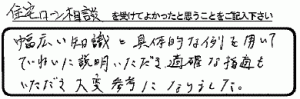 住宅ローン相談 を受けてよかったと思うことをご記入下さい
幅広い知識と具体的な例を用いて
ていねいに説明いただき適確な指導も
いただき大変参考になりました。